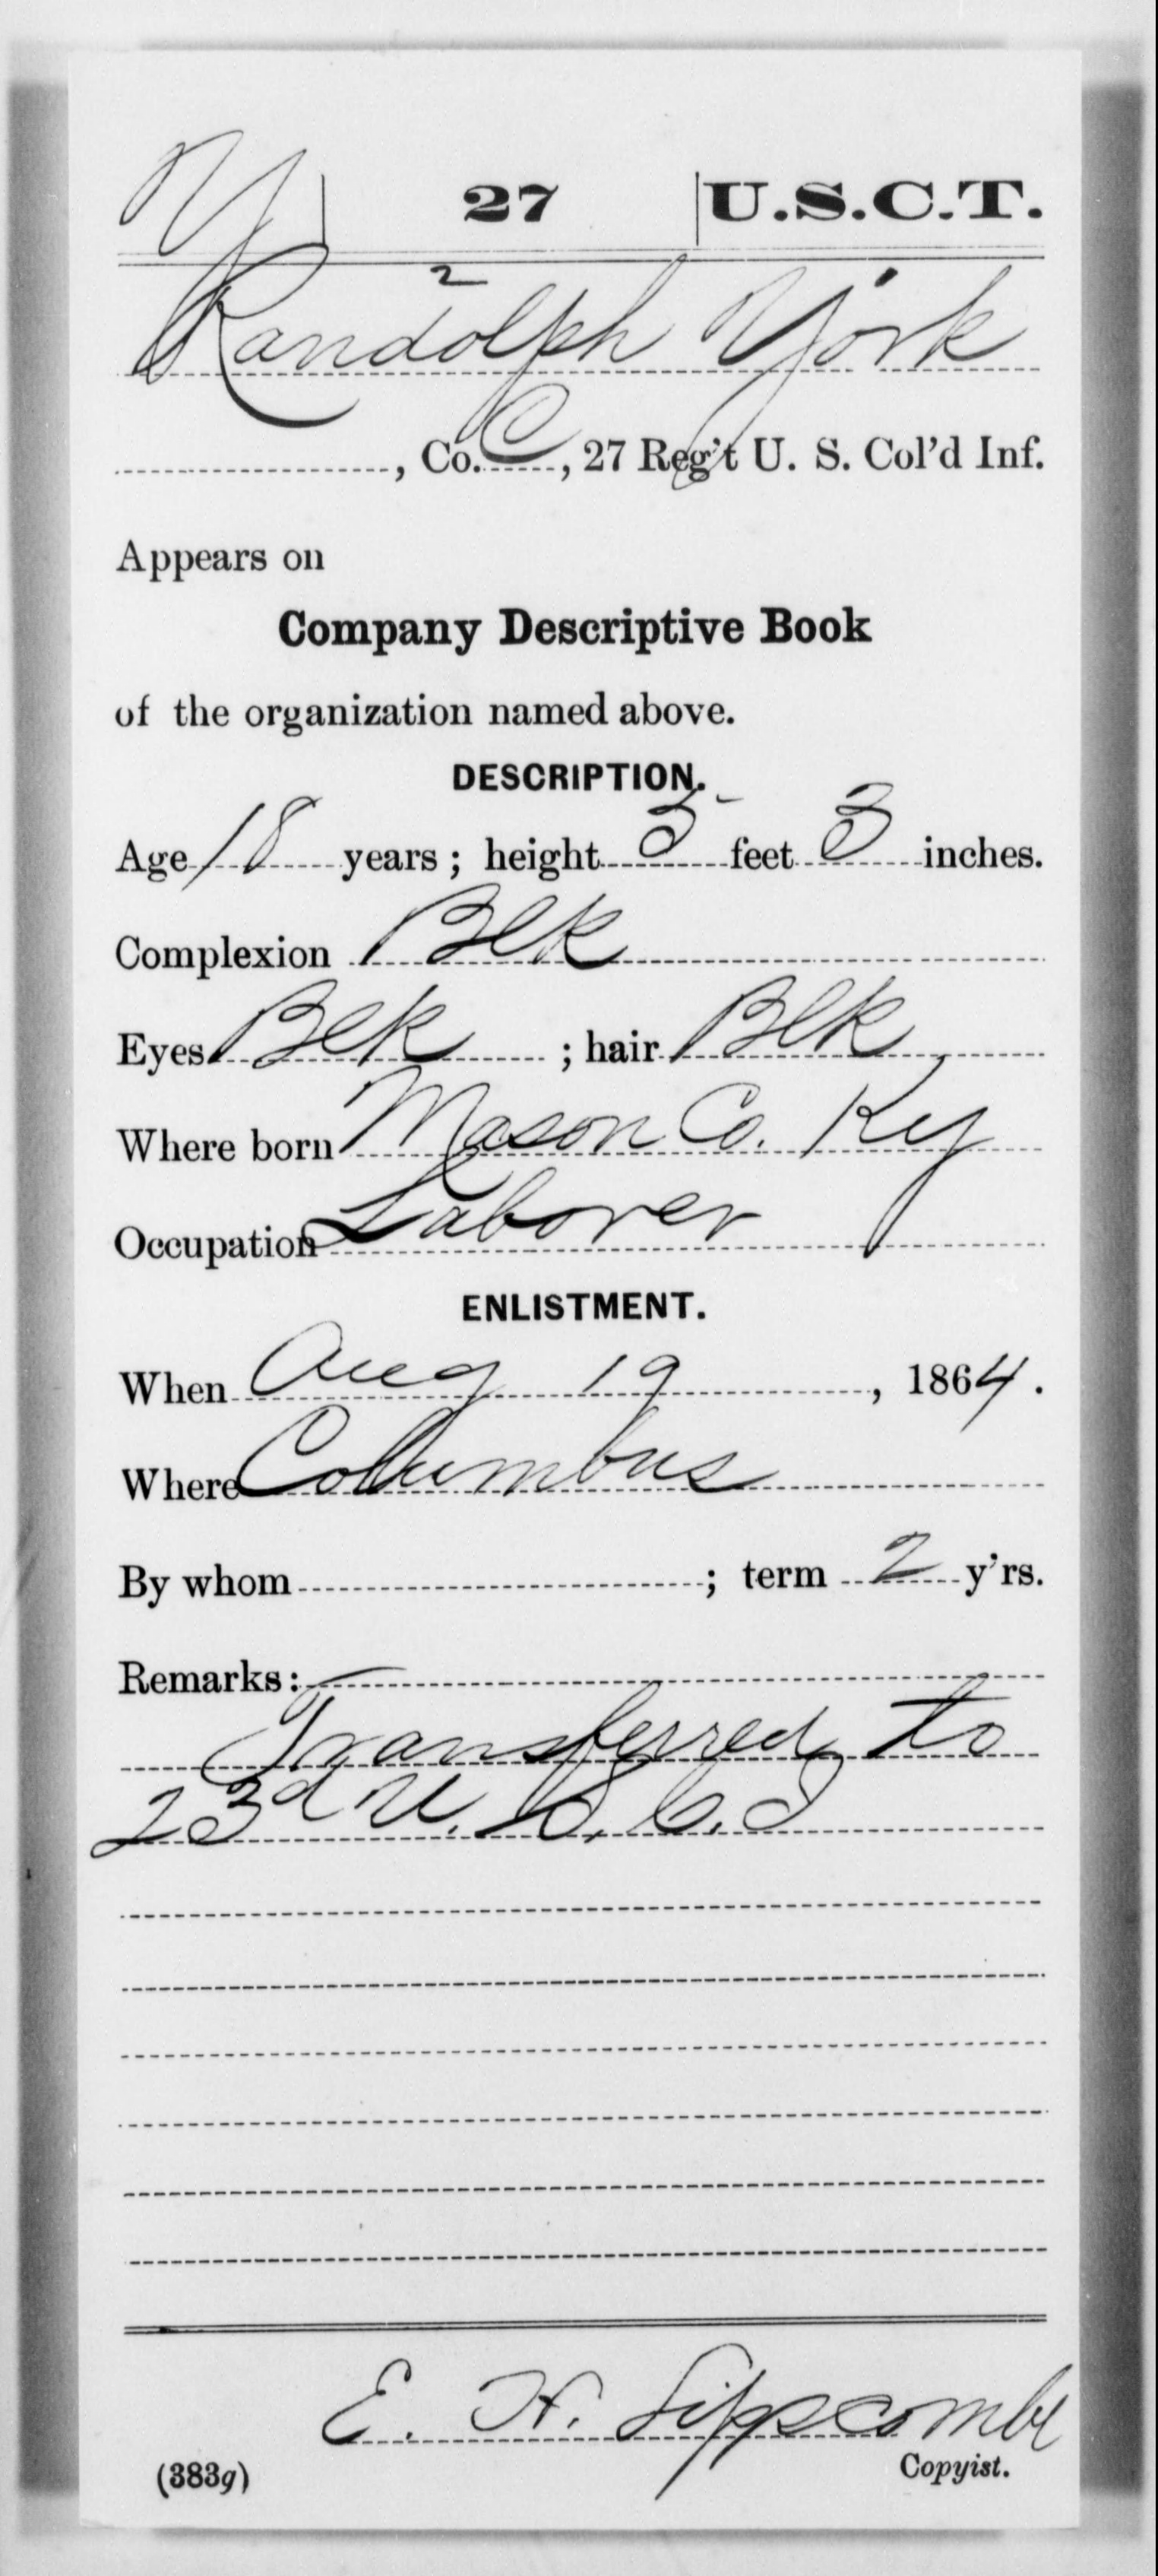 Y 27 U.S.C.T.
2
Randolph York
, Co. C, 27 Reg't U. S. Col'd Inf.
Appears on
Company Descriptive Book
of the organization named above.
DESCRIPTION.
Age 18 years; height 5 feet 3 inches.
Complexion Blk
Eyes Blk; hair Blk
Where born Mason Co. Ky
Occupation Laborer
ENLISTMENT.
When Aug 19, 1864.
Where Columbus
By whom ; term 2 y'rs.
Remarks:
Transferred to
23d U. S. C. I
E. H. Lipscombe
Copyist.
(383g)